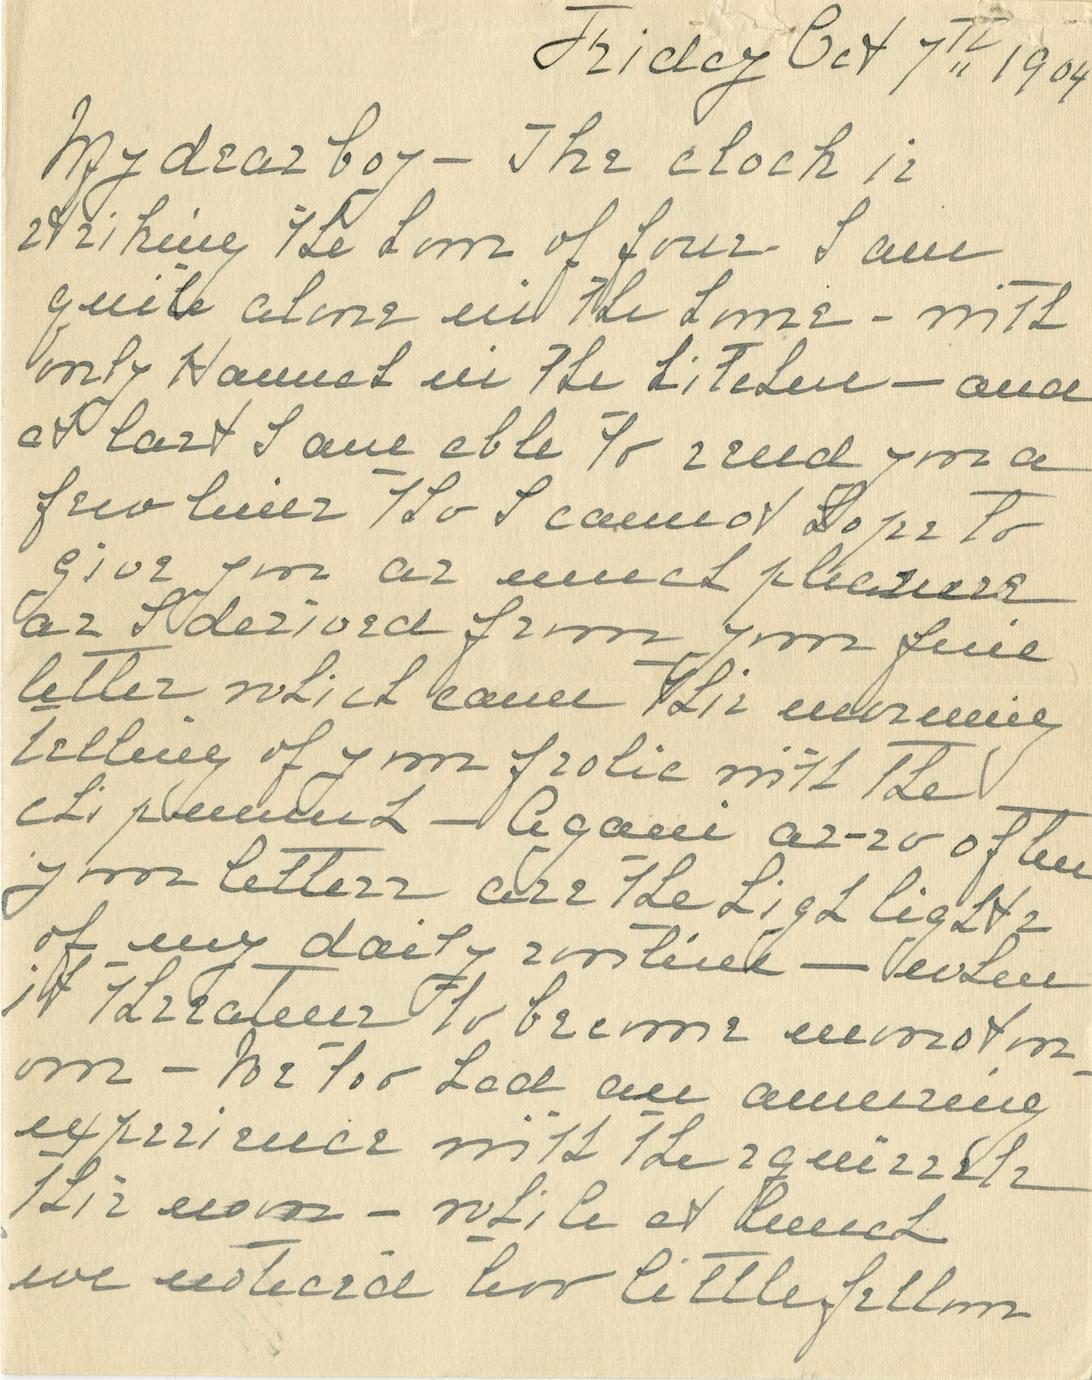 Friday Oct 7TH 1904
My dear boy - The clock is
striking the hour of four. I am
quite alone in the house - with
only Hannah in the kitchen - and
at last I am able to send you a
few lines tho I cannot hope to
give you as much pleasure
as I derived from your fine
letter which came this morning
telling of your frolic with the
chipmunk - Again as-so often
your letters are the high lights
of my daily routine - when
it threatens to become monoton-
ous - We too had an amusing
experience with the squirrels
this noon - while at lunch
we noticed two little fellows